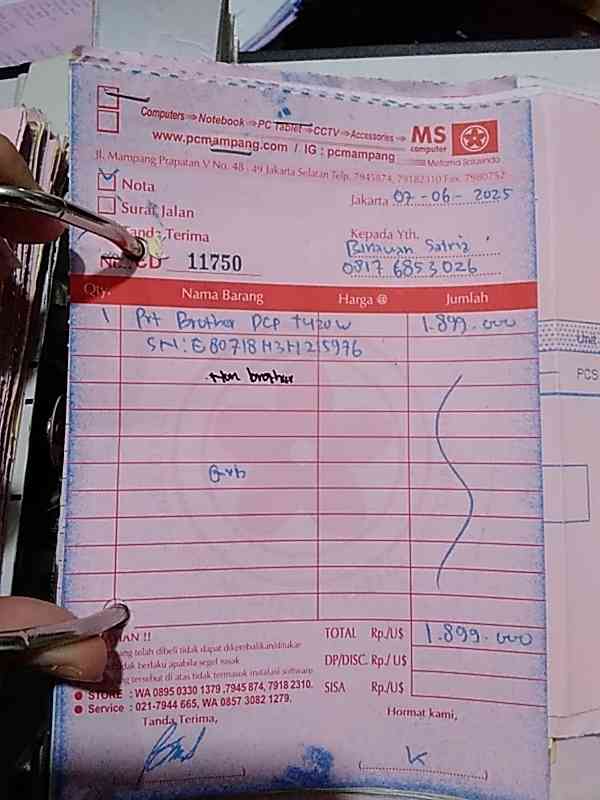 Computers⇒Notebook⇒PC Tablet⇒CCTV⇒Accessories⇒
MS
computer
www.pcmampang.com / IG : pcmampang
Metama Sarasindo
Jl. Mampang Prapatan V No. 48 - 49 Jakarta Selatan Telp. 7945874, 79182310 Fax. 7980752
Nota
Jakarta 07-06-2025
Surat Jalan
Tanda Terima
Kepada Yth.
No. CD 11750
0817 6853026
Qty. Nama Barang Harga @ Jumlah
1 Prt Brother DCP T420W 1.899.000
SN: E80718H3H215976
Non brother
TOTAL Rp./U$ 1.899.000
telah dibeli tidak dapat dikembalikan/ditukar
DP/DISC. Rp./ U$
tidak berlaku apabila segel rusak
tersebut di atas tidak termasuk instalasi software
SISA Rp./U$
STORE : WA 0895 0330 1379 ,7945 874, 7918 2310.
Service : 021-7944 665, WA 0857 3082 1279.
Tanda Terima,
Hormat kami,
Unit
PCS